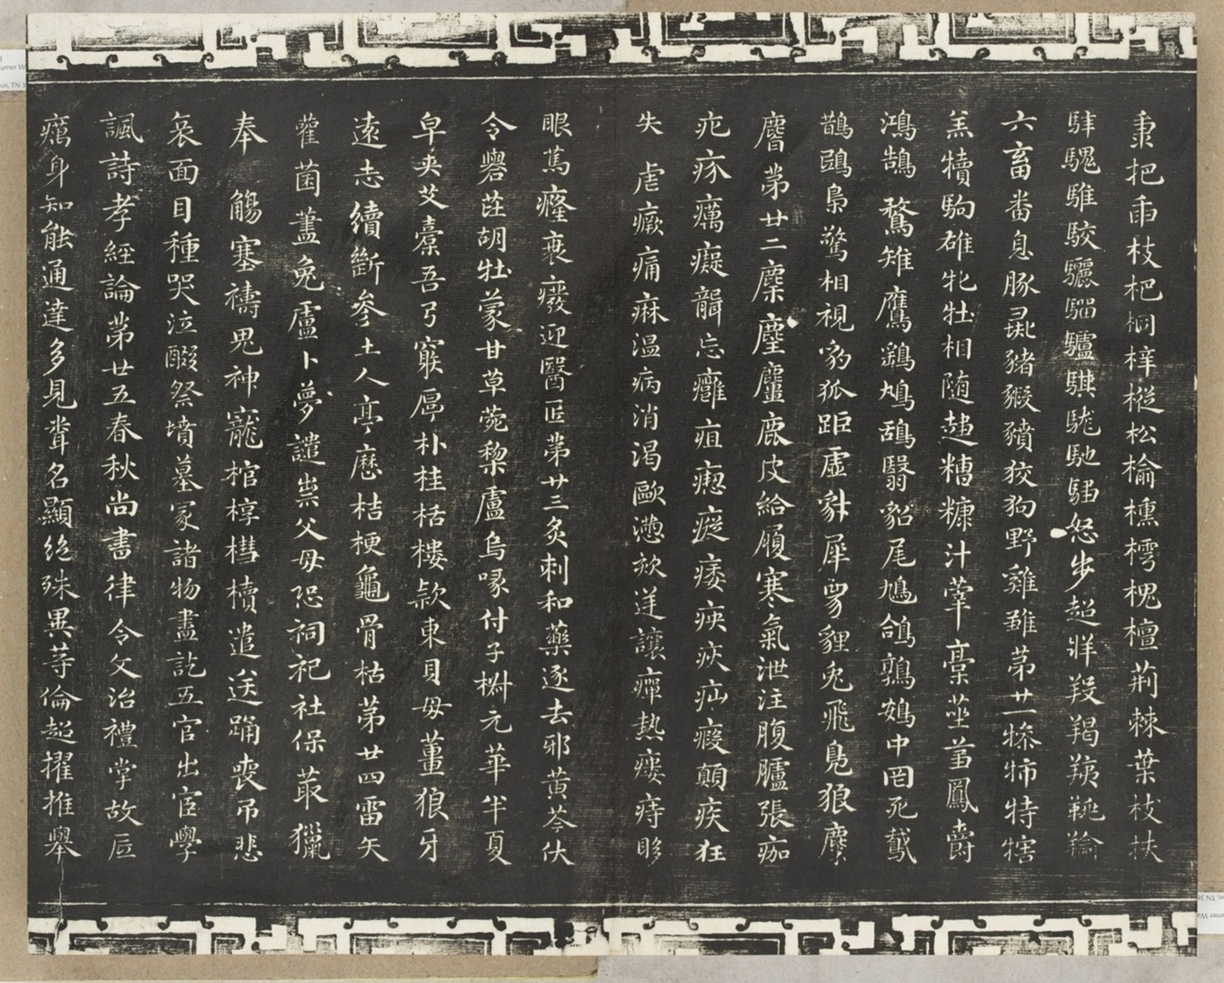 橐把臿枝杷桐梓樅松榆橞樗槐檀荊棘葉枝扶
騂騩騅駮驪駵驢騏駹馳驅怒步超牂羖羯羠羭
六畜番息豚彘豬豭豶狡狗野雞雛第廿一㸬㹀特犗
羔犢駒雄牝牡相隨趨糟糠汁滓稾莝芻鳳爵
鴻鵠鶩雉鷹鷂鴇鴰翳貂尾鳩鴿鶉鴳中罔死
鵲鴟梟驚相視豹狐距虛豺犀兕貍兔飛狼麋
麏第廿二麇麈麖鹿皮給履寒氣泄注腹臚張痂
疕疥癘癡聾忘癰疽瘛瘲痿疾疢疝瘕顛疾狂
失虐瘚痛痳溫病消渴歐懣欬逆讓癉熱瘻痔眵
眼篤癃衰癈迎醫匠第廿三灸刺和藥逐去邪黃芩伏
令礜茈胡牡蒙甘草菀藜盧烏喙付子椒元華半夏
皁莢艾橐吾弓窮厚朴桂栝樓款東貝母薑狼牙
遠志續斷參土人亭歷桔梗龜骨枯第廿四雷矢
雚菌藎兔盧卜夢譴祟父母恐祠祀社保叢獵
奉觴塞禱鬼神寵棺椁槥櫝遣送踊喪弔悲
哀面目種哭泣醊祭墳墓冢諸物盡訖五官出宦學
諷詩孝經論第廿五春秋尚書律令文治禮掌故底
癘身知能通達多見聞名顯絕殊異等倫超擢推舉